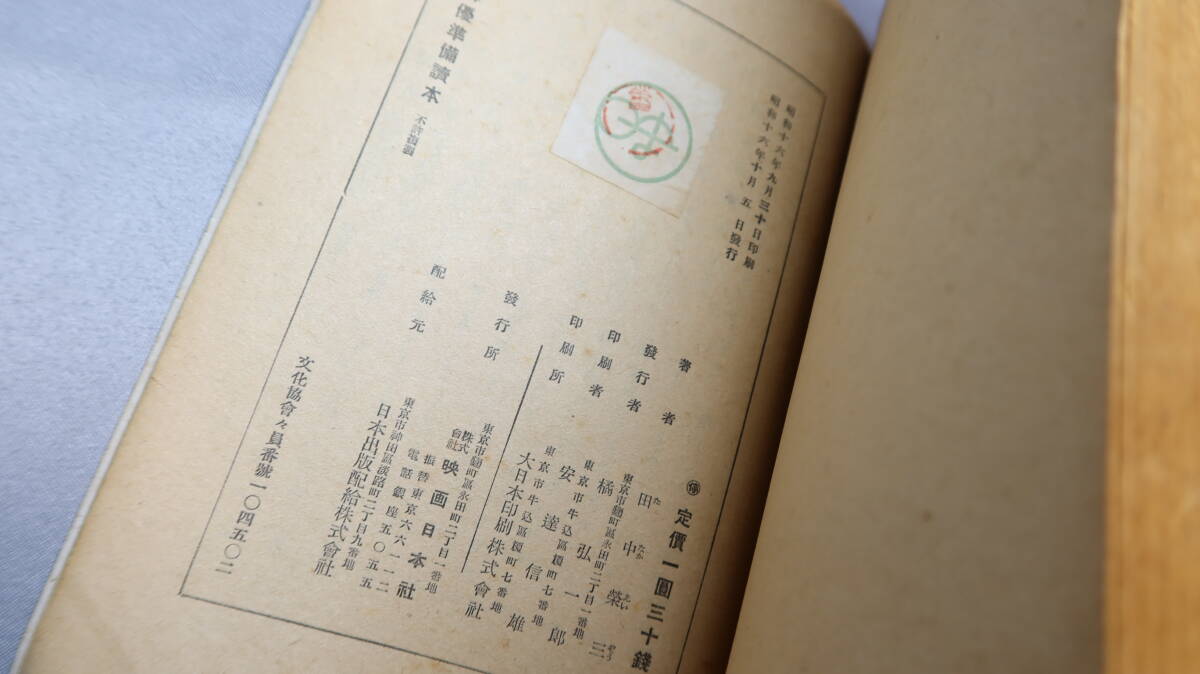 昭和十六年九月三十日印刷
昭和十六年十月五日發行
優準備讀本 不許複製
㊞停 定價一圓三十錢
著者 田中榮三
たなかえいざう
發行者 東京市麴町區永田町二丁目一番地
橘弘一郎
印刷者 東京市牛込區榎町七番地
安達信雄
印刷所 東京市牛込區榎町七番地
大日本印刷株式會社
發行所 東京市麴町區永田町二丁目一番地
株式會社 映画日本社
振替東京六六一一二
電話銀座五〇五五
配給元 東京市神田區淡路町二丁目九番地
日本出版配給株式會社
文化協會々員番號一〇四五〇二